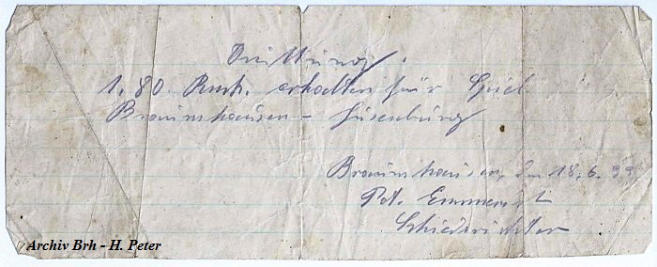 Quittung.
1,80 Rmk. erhalten für Spiel
Braunshausen - Susenburg
Braunshausen, den 18.6.33
Pet. Emmerich
Schiedsrichter
Archiv Brh - H. Peter